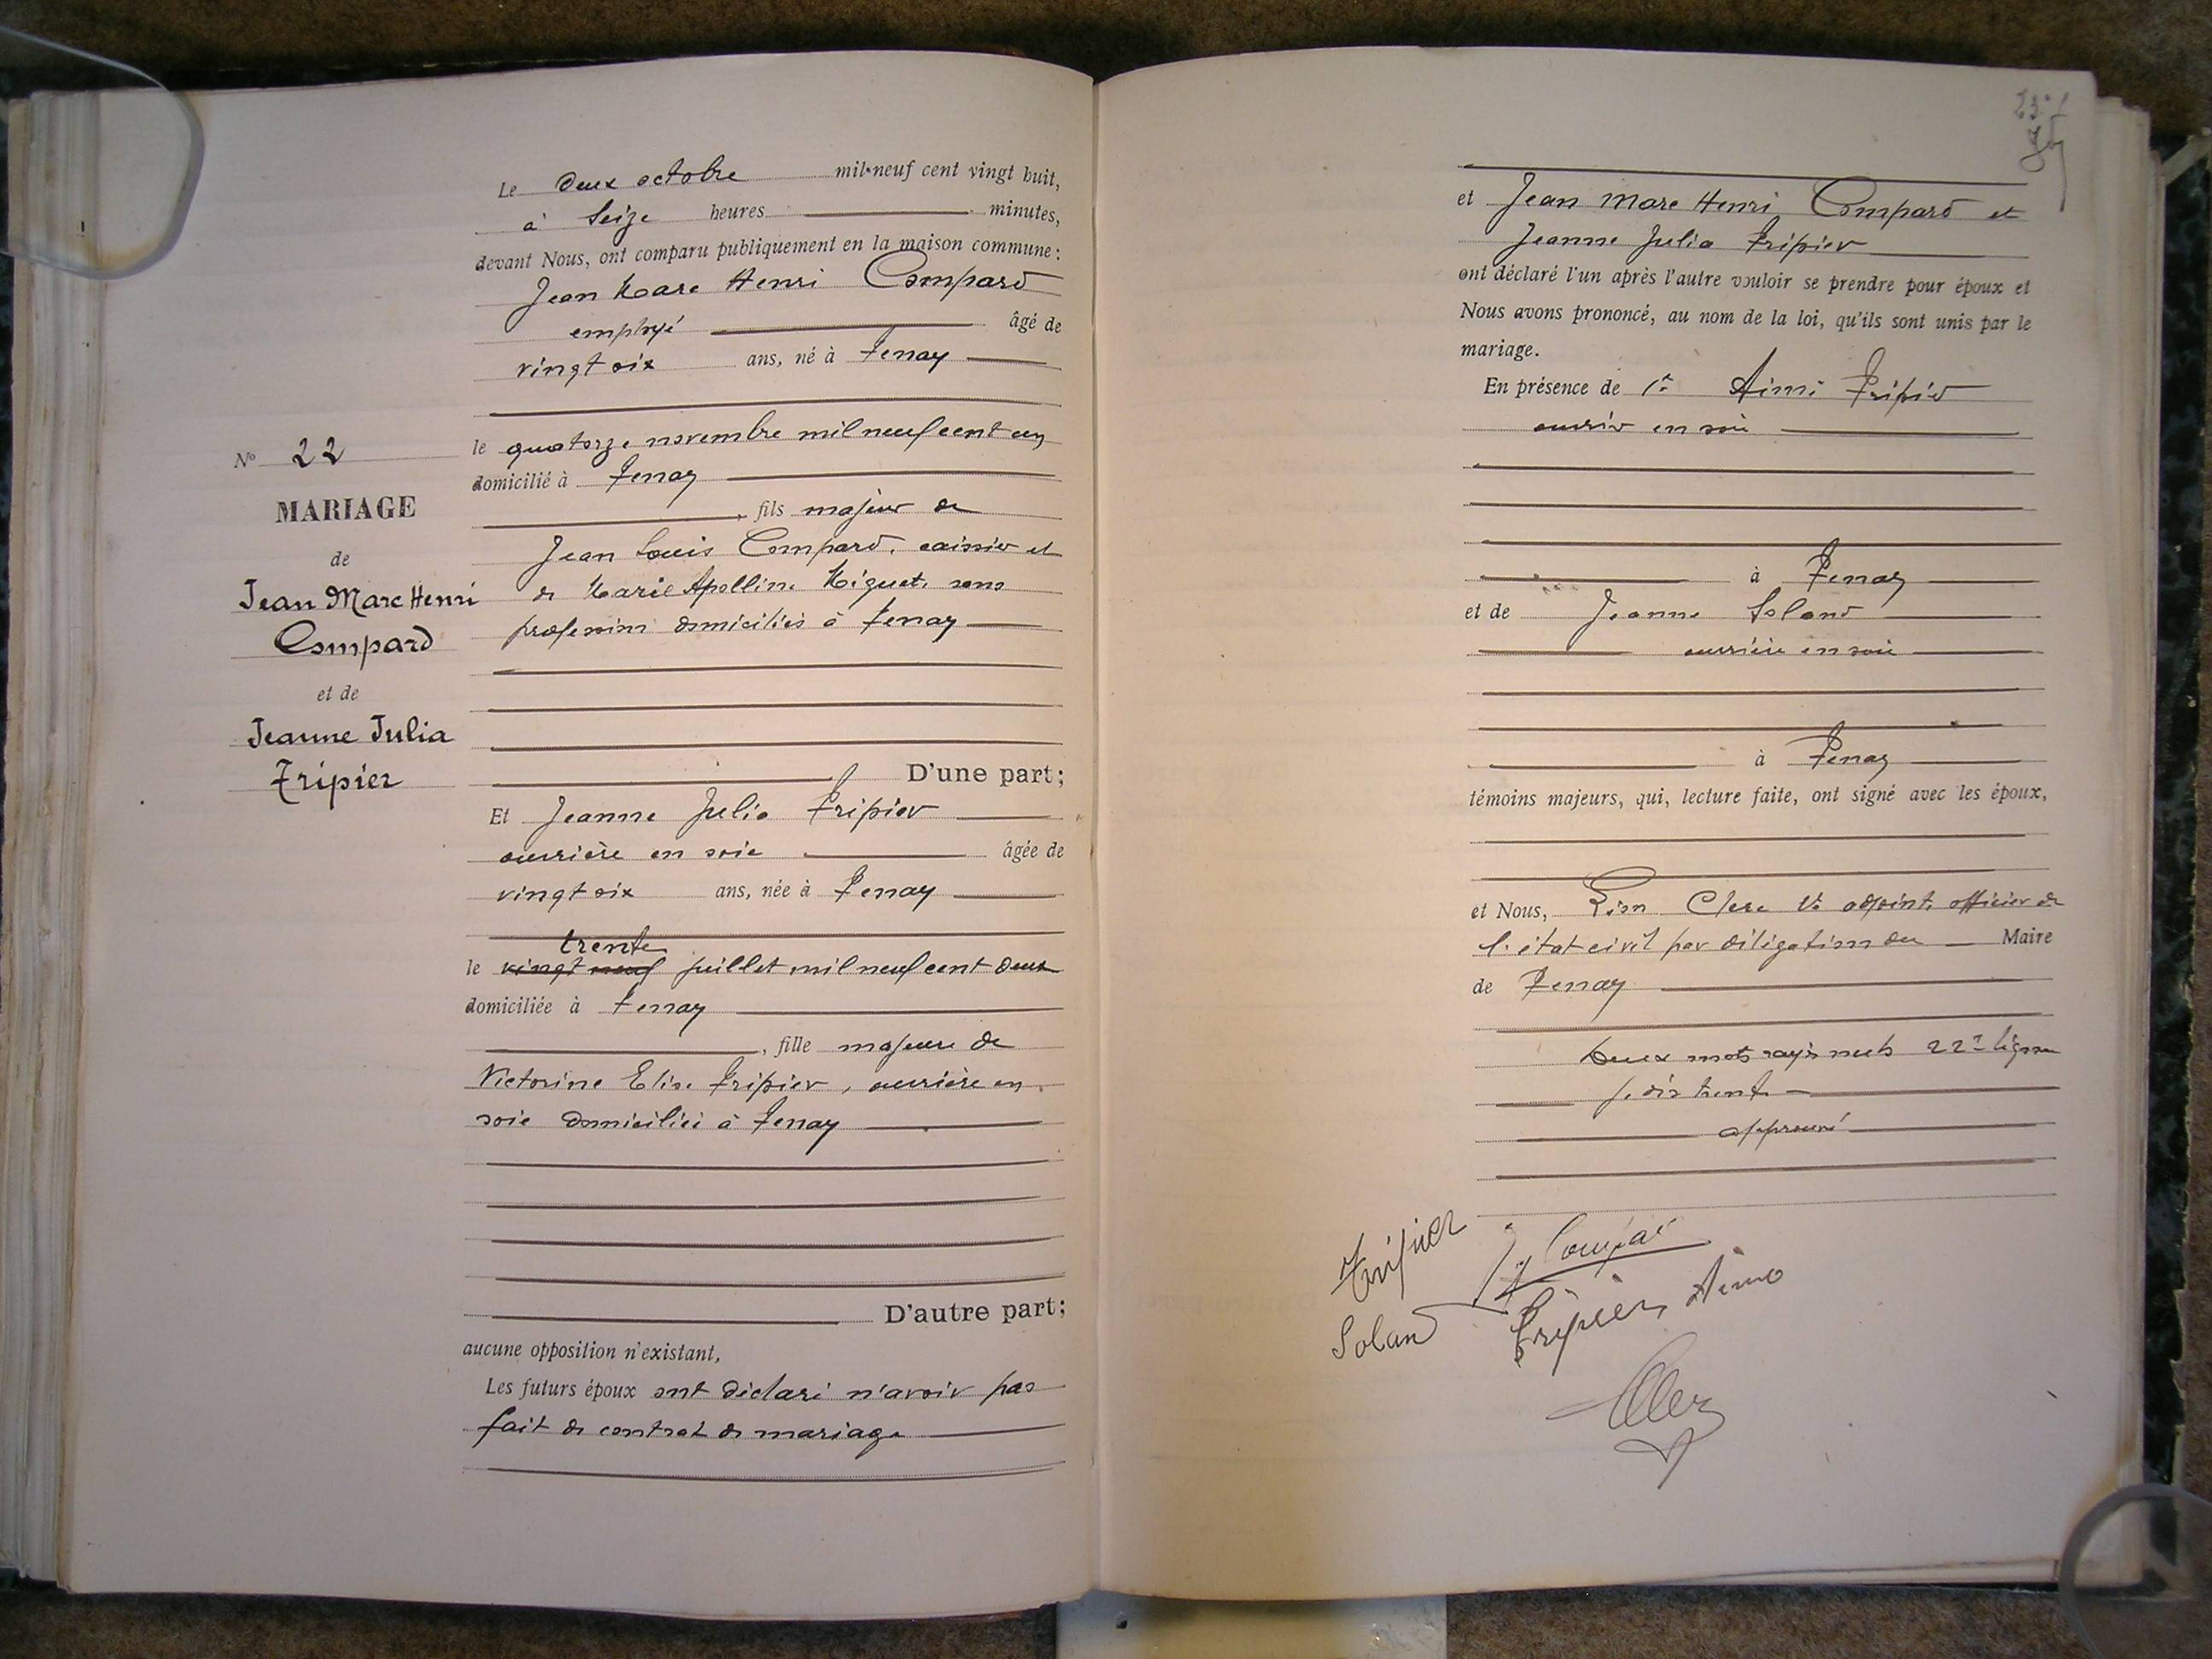 Le deux octobre mil neuf cent vingt huit,
à seize heures minutes,
devant Nous, ont comparu publiquement en la maison commune :
Jean Marc Henri Compard
employé âgé de
vingt six ans, né à Tenay
le quatorze novembre mil neuf cent un
domicilié à Tenay
, fils majeur de
Jean Louis Compard, caissier et
de Marie Apolline Miguet, sans
profession domiciliés à Tenay
D'une part ;
Nº 22
MARIAGE
de
Jean Marc Henri
Compard
et de
Jeanne Julia
Tripier
Et Jeanne Julia Tripier
ouvrière en soie âgée de
vingt six ans, née à Tenay
trente
le vingt neuf juillet mil neuf cent deux
domiciliée à Tenay
, fille majeure de
Victorine Elise Tripier, ouvrière en
soie domiciliée à Tenay
D'autre part ;
aucune opposition n'existant,
Les futurs époux ont déclaré n'avoir pas
fait de contrat de mariage
et Jean Marc Henri Compard et
Jeanne Julia Tripier
ont déclaré l'un après l'autre vouloir se prendre pour époux et
Nous avons prononcé, au nom de la loi, qu'ils sont unis par le
mariage.
En présence de 1º Aimé Tripier
ouvrier en soie
à Tenay
et de Jeanne Soland
ouvrière en soie
à Tenay
témoins majeurs, qui, lecture faite, ont signé avec les époux,
et Nous, Léon Clerc 1er adjoint, officier de
l'état civil par délégation du Maire
de Tenay
Deux mots rayés nuls 22e ligne
je dis trente
approuvé
Tripier
Compar
Soland
Tripier Aimé
Clerc